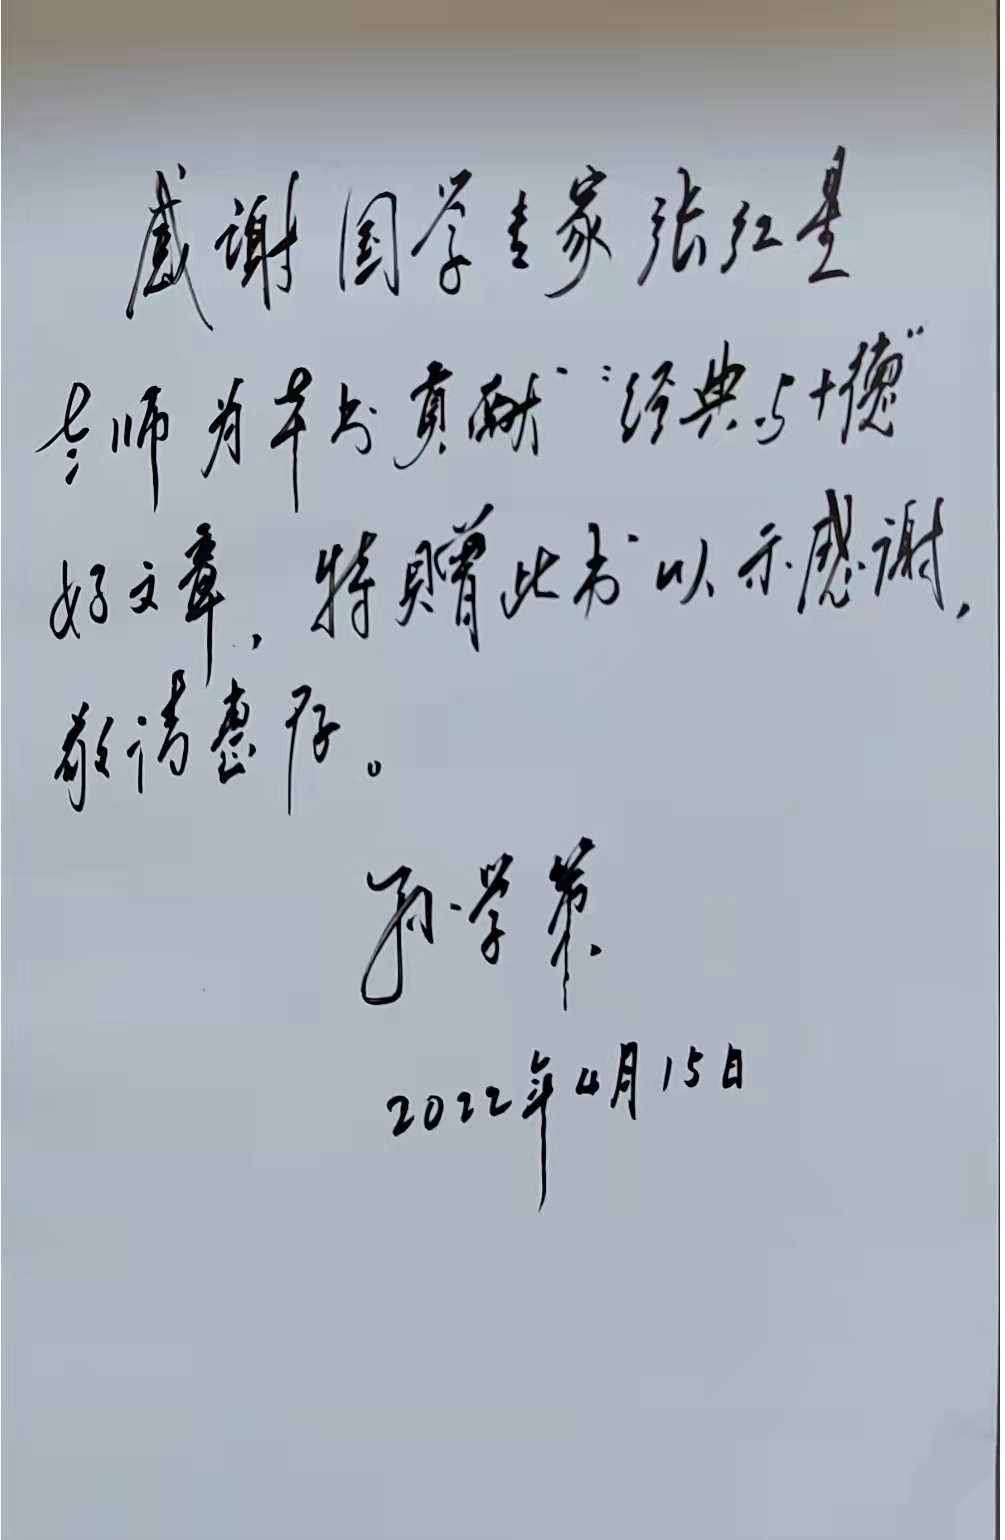 感谢国学专家张红星
老师为本书贡献“经典与十德”
好文章，特赠此书以示感谢，
敬请惠存。
孙学策
2022年4月15日